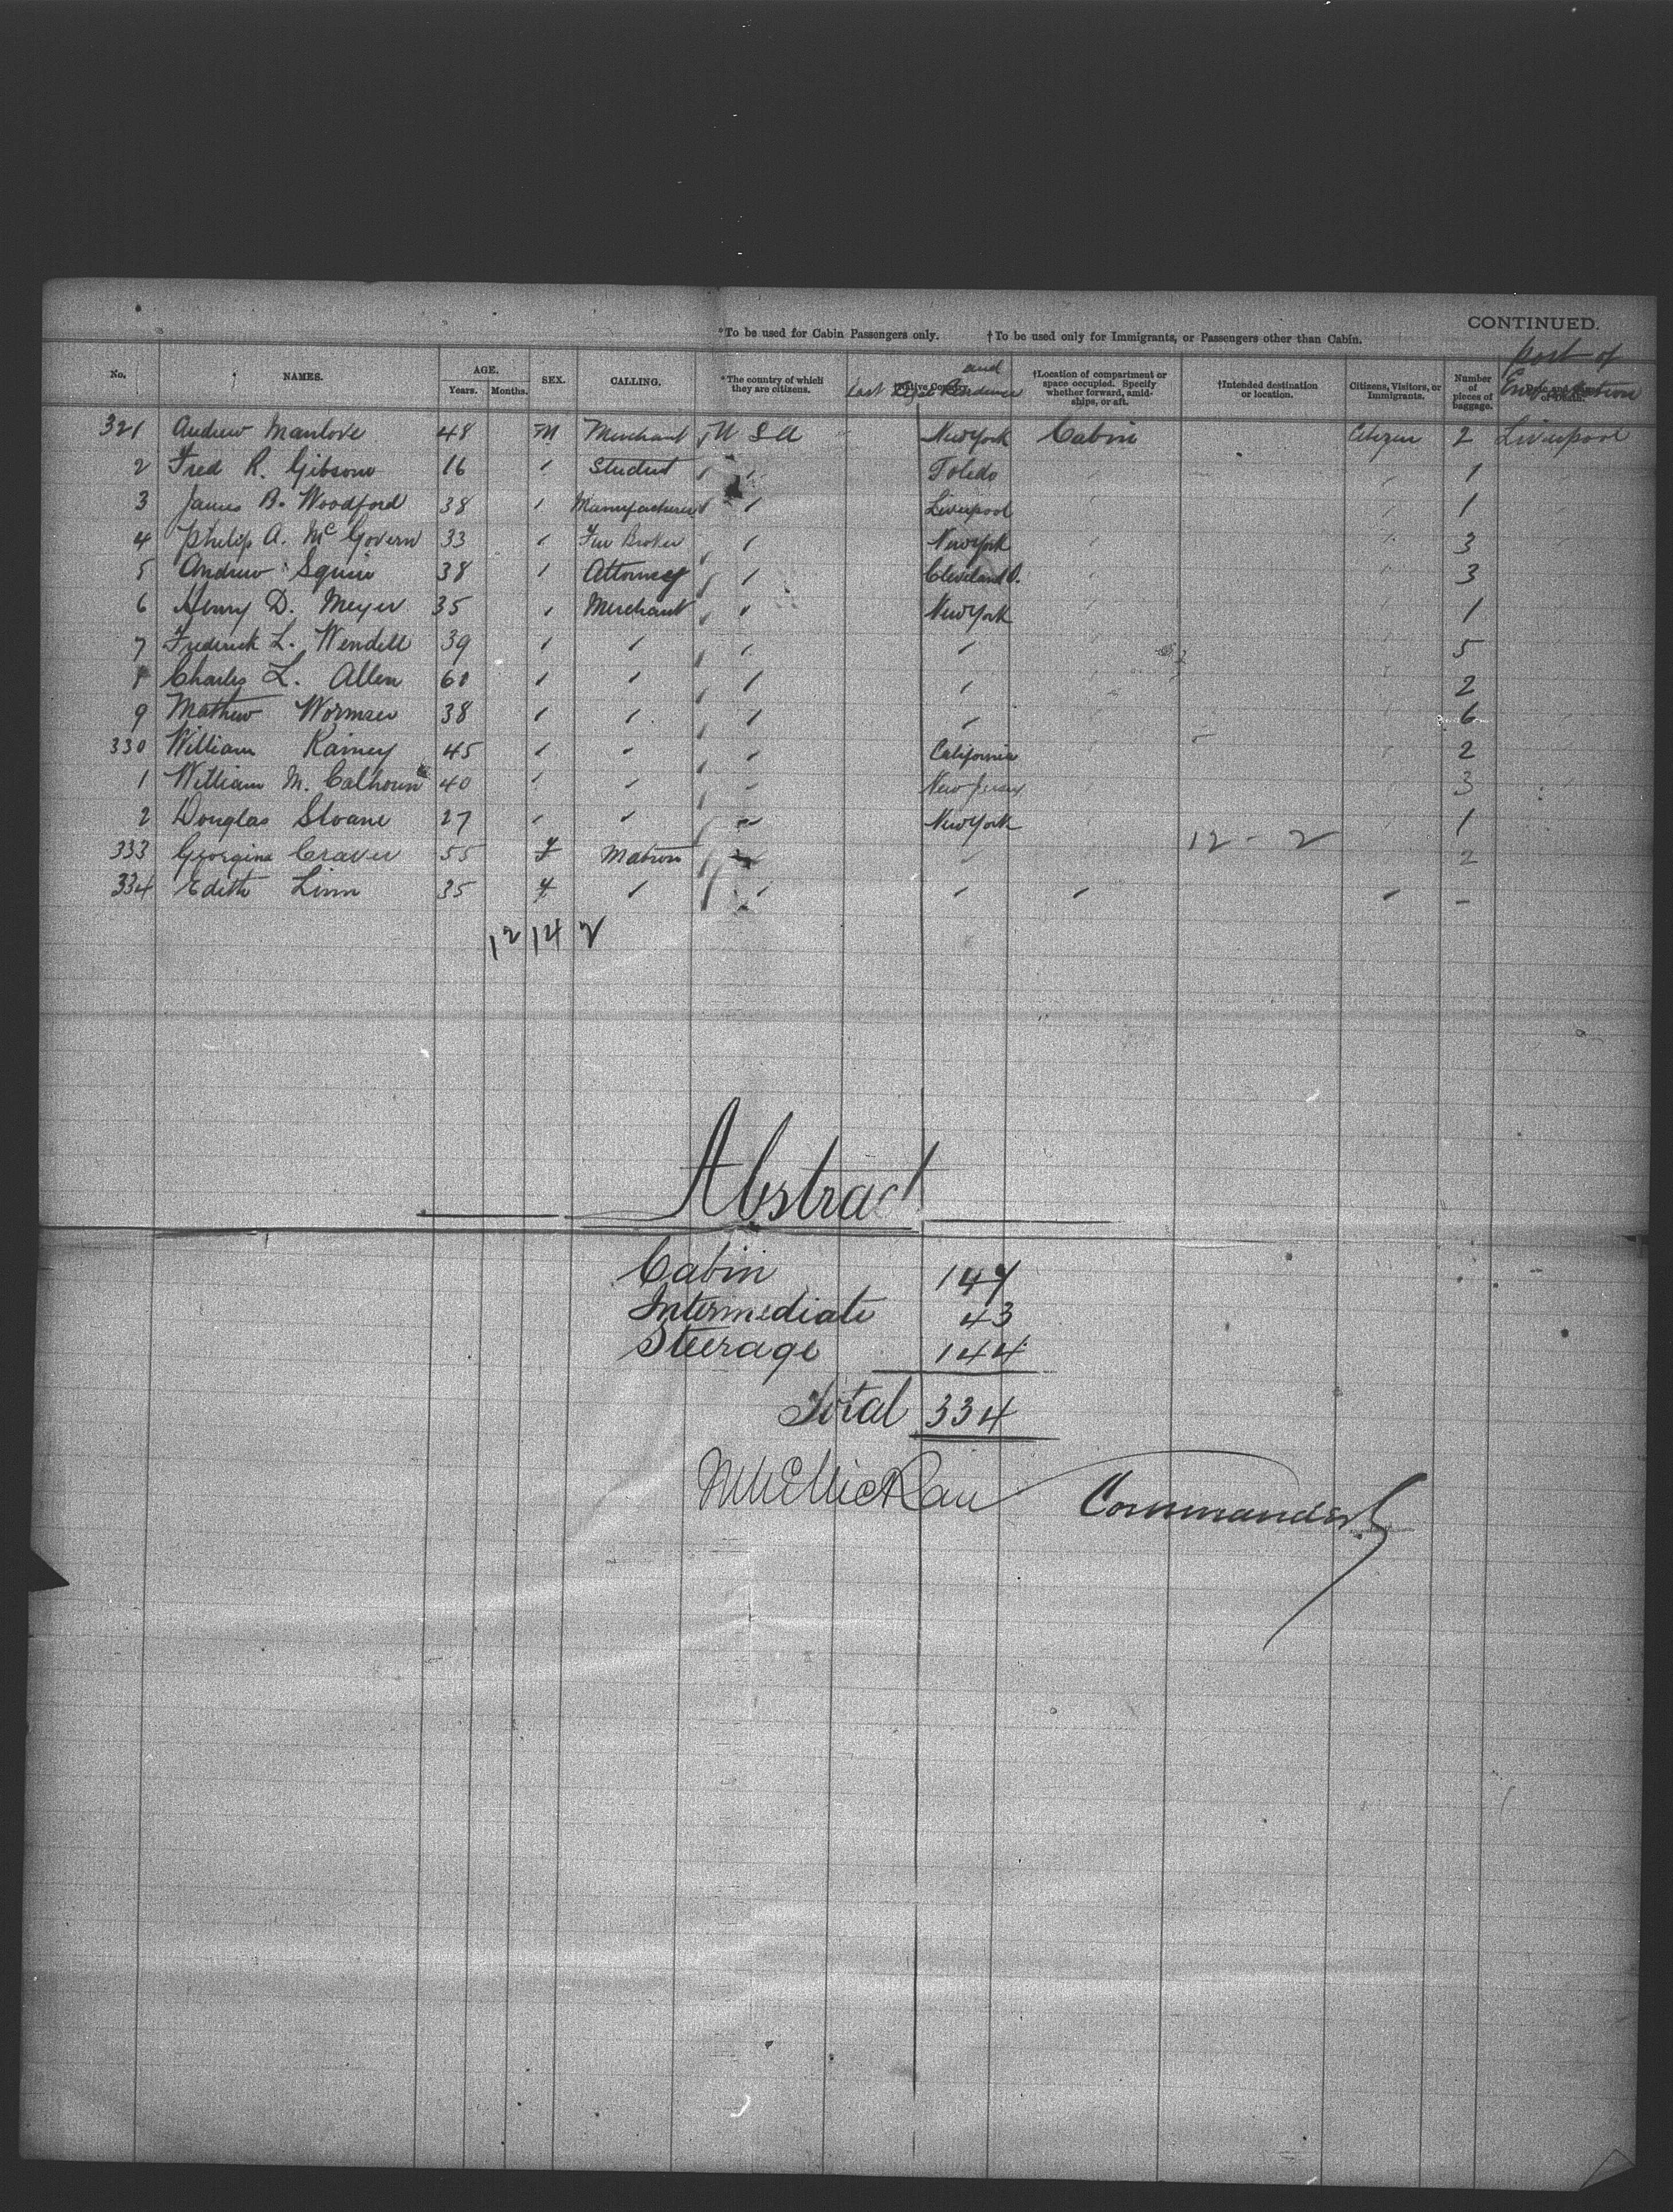 CONTINUED.
*To be used for Cabin Passengers only. †To be used only for Immigrants, or Passengers other than Cabin.
No. NAMES. AGE. Years. Months. SEX. CALLING. *The country of which they are citizens. Last Legal Residence and †Location of compartment or space occupied. Specify whether forward, amidships, or aft. †Intended destination or location. Citizens, Visitors, or Immigrants. Number of pieces of baggage. port of Embarkation
321 Andrew Manlove 48 M Merchant U S A New York Cabin Citizen 2 Liverpool
2 Fred R. Gibson 16 " Student " Toledo " 1
3 James B. Woodford 38 " Manufacturer " Liverpool " 1
4 Philip A. McGovern 33 " Broker " New York " 3
5 Andrew Squire 38 " Attorney " Cleveland O. " 3
6 Henry D. Meyer 35 " Merchant " New York " 1
7 Frederick L. Wendell 39 " " " " 5
8 Charles L. Allen 60 " " " " 2
9 Mathew Wormser 38 " " " " 6
330 William Rainey 45 " " " California 2
1 William M. Calhoun 40 " " " New Jersey 3
2 Douglas Sloane 27 " " " New York 1
12 - 2
333 Georgina Craver 55 F Matron " " 2
334 Edith Linn 35 F " " " " " -
12 14 2
Abstract
Cabin 147
Intermediate 43
Steerage 144
Total 334
Commander